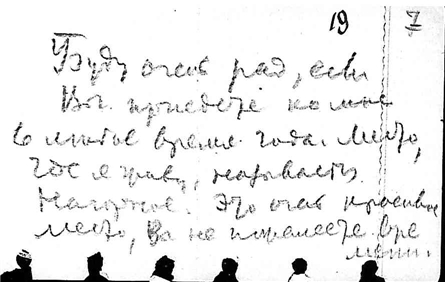 19 I
Буду очень рад, если
Вы приедете ко мне
в любое время года. Место,
где я живу, называется
Нагорное. Это очень красивое
место, Вы не пожалеете вре
мени.